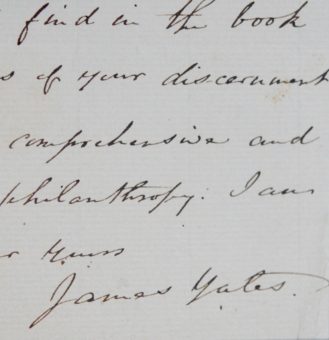 find in the book
of your discernment
comprehensive and
philanthropy. I am
yours
James Yates.